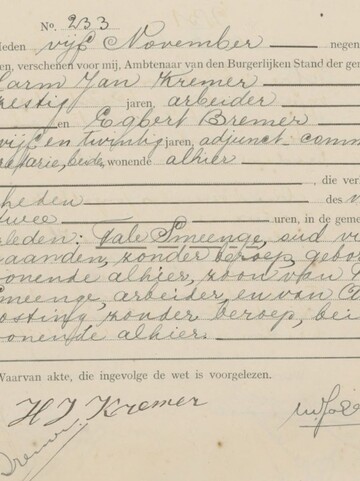 No. 233
Heden vijf November negen
en, verschenen voor mij, Ambtenaar van den Burgerlijken Stand der ge
Harm Jan Kremer
zestig jaren, arbeider
en Egbert Bremer
vijf en twintig jaren, adjunct-comm
retarie, beide wonende alhier
, die ver
heden des v
twee uren, in de geme
leden: Tale Smeenge, oud vi
maanden, zonder beroep, gebor
wonende alhier, zoon van
Smeenge, arbeider, en van
oosting zonder beroep, bei
wonende alhier.
Waarvan akte, die ingevolge de wet is voorgelezen.
H J Kremer
Bremer